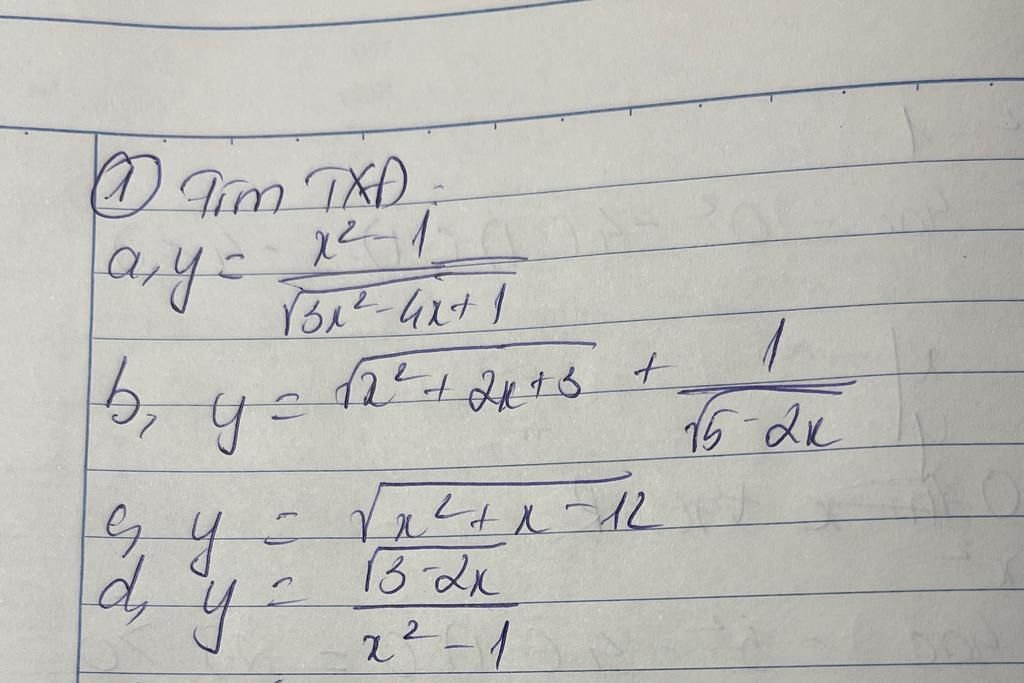 ① Tìm TXĐ:
a, y = \frac{x^2-1}{\sqrt{3x^2-4x+1}}
b, y = \sqrt{x^2+2x+3} + \frac{1}{\sqrt{5-2x}}
c, y = \sqrt{x^2+x-12}
d, y = \frac{\sqrt{3-2x}}{x^2-1}